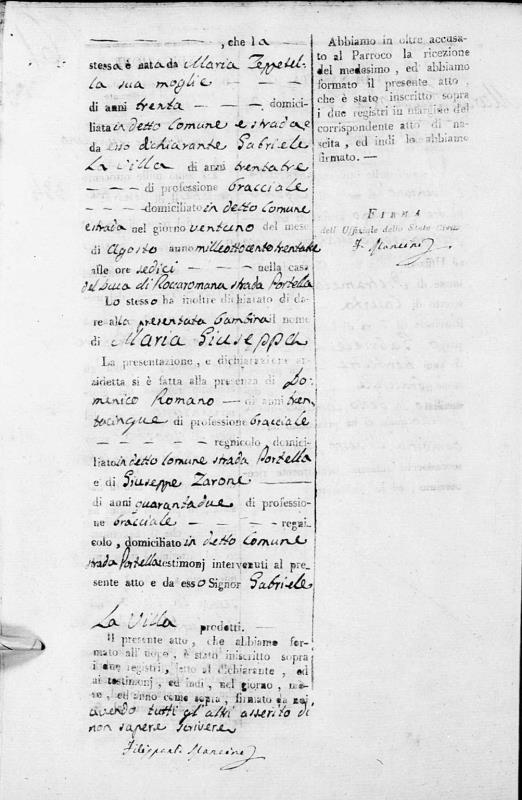 , che la
stessa è nata da Maria Zeppetel-
la sua moglie
di anni trenta — — — domici-
liata in detto Comune e strada e
da esso dichiarante Gabriele
La Villa — di anni trentatre
— — — di professione bracciale
— — — domiciliato in detto Comune
e strada nel giorno ventuno del mese
di Agosto anno mille ottocento trentatre
alle ore sedici — — — nella casa
del Duca di Roccaromana strada Portella
Lo stesso ha inoltre dichiarato di da-
re alla presentata bambina il nome
di Maria Giuseppa
La presentazione, e dichiarazione an-
zidetta si è fatta alla presenza di Do-
menico Romano — di anni tren-
tacinque di professione bracciale
— — — — — regnicolo domici-
liato in detto Comune strada Portella
e di Giuseppe Zarone —
di anni quarantadue di professio-
ne bracciale — — — — regni-
colo, domiciliato in detto Comune
strada Portella testimonj intervenuti al pre-
sente atto e da esso Signor Gabriele
La Villa prodotti. —
Il presente atto, che abbiamo for-
mato all' uopo, è stato inscritto sopra
i due registri, letto al dichiarante, ed
ai testimonj, ed indi, nel giorno, me-
se, ed anno come sopra, firmato da noi
avendo tutti gl'altri asserito di
non sapere scrivere
Mancino
Abbiamo in oltre accusa-
to al Parroco la ricezione
del medesimo, ed abbiamo
formato il presente atto,
che è stato inscritto sopra
i due registri in margine del
corrispondente atto di na-
scita, ed indi lo abbiamo
firmato. —
FIRMA
dell' Uffiziale dello Stato Civile
F. Mancino